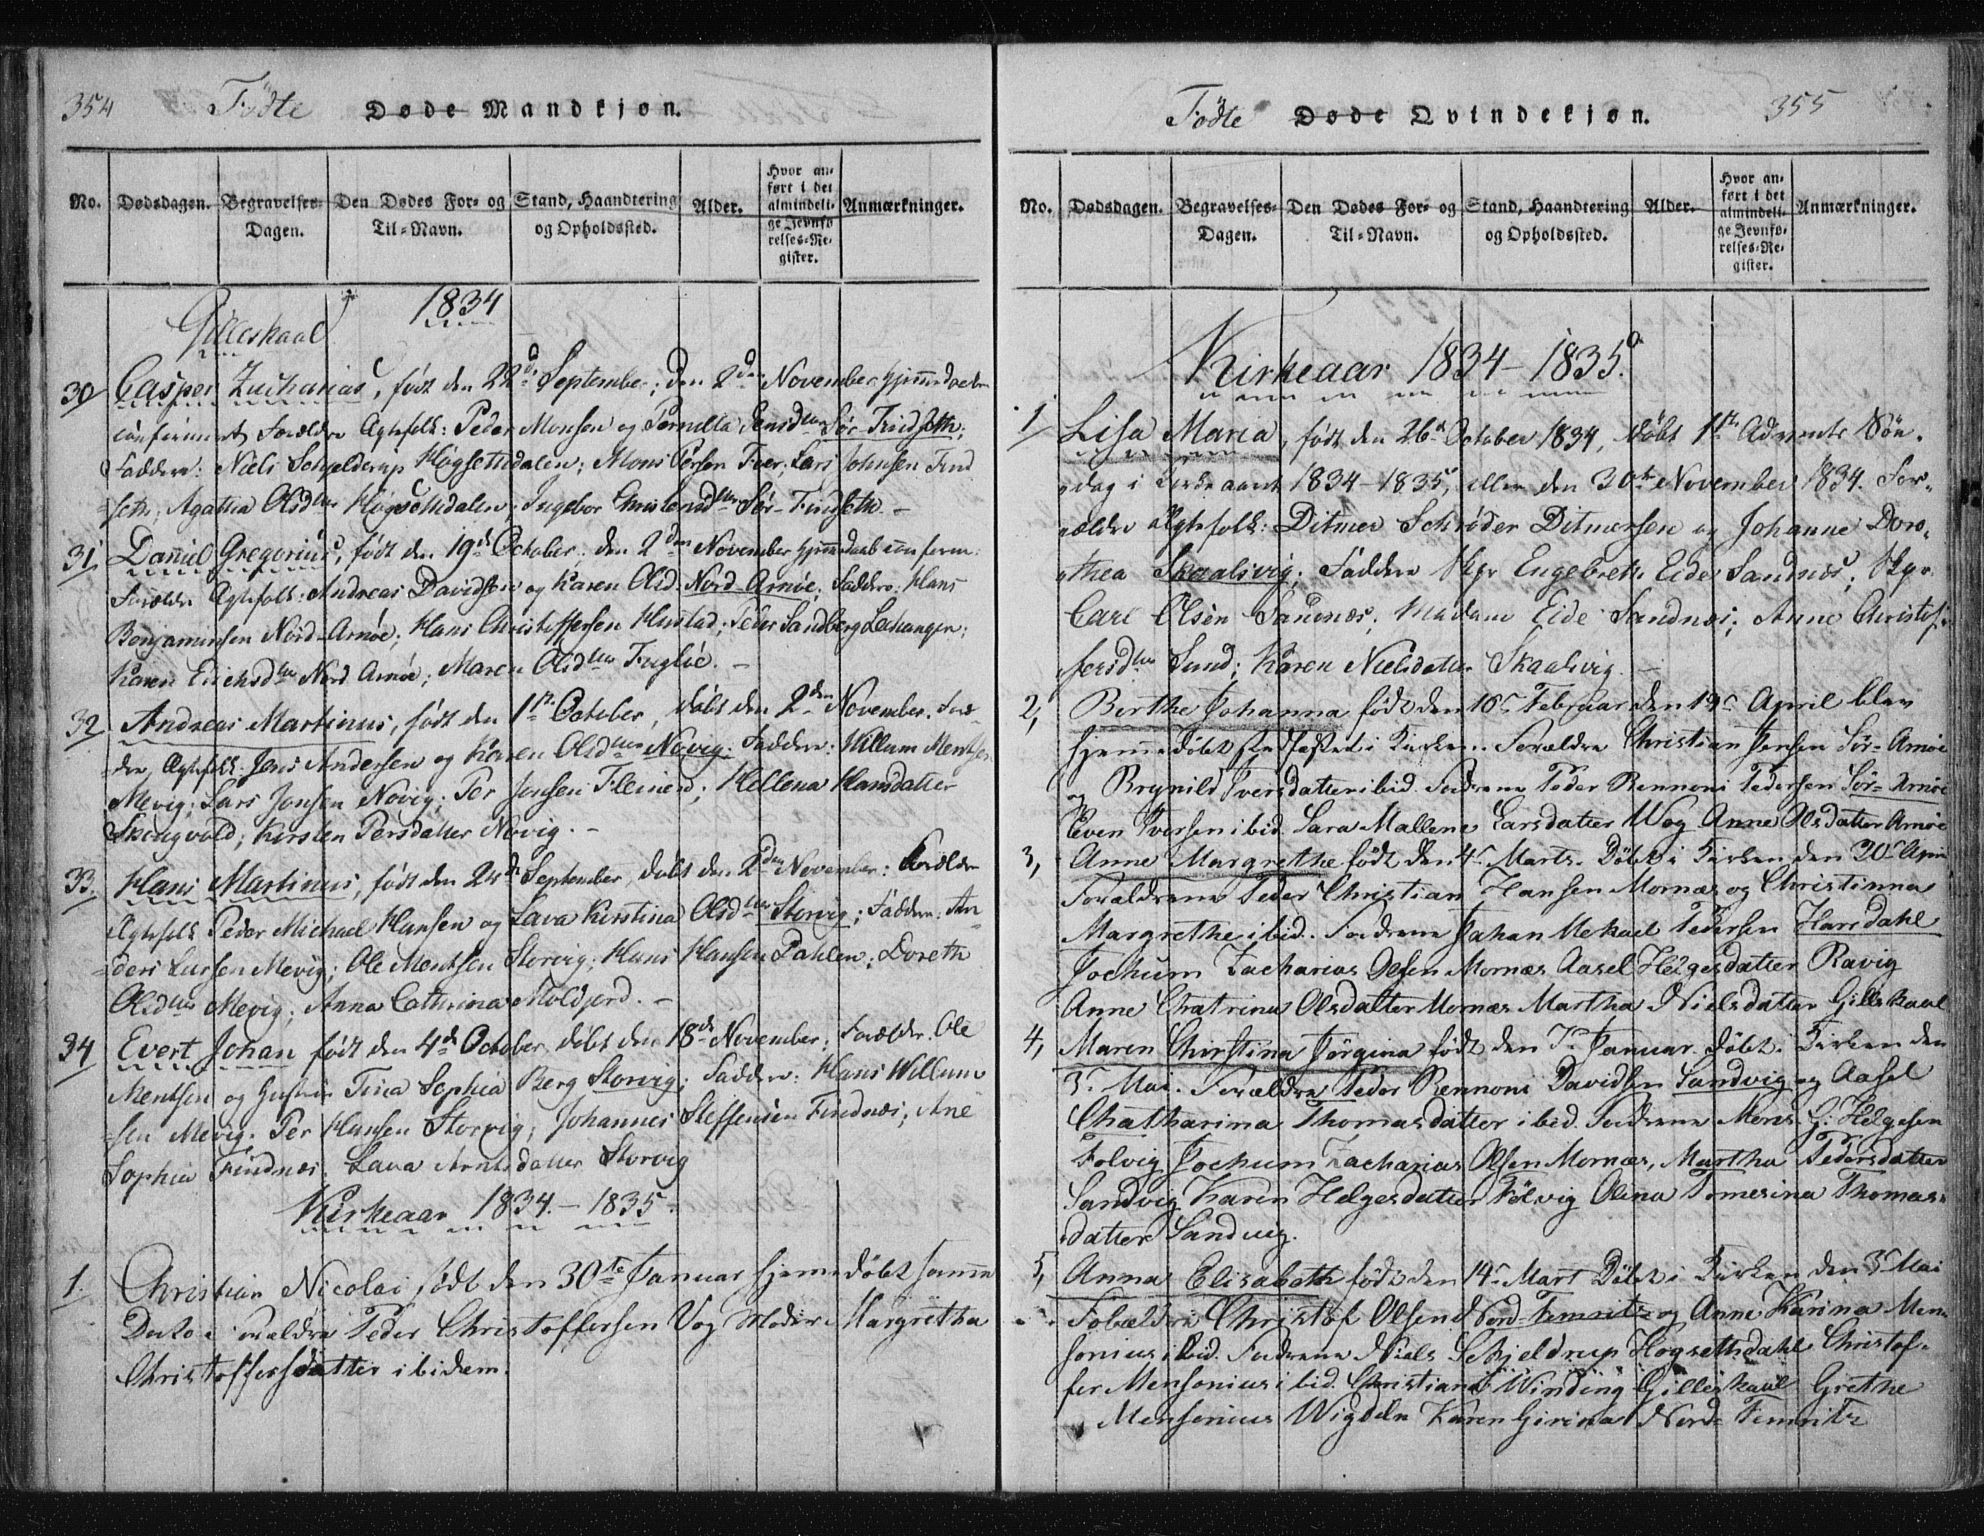 354 Födte Døde Mandkjøn.
No. Dødsdagen. Begravelses-Dagen. Den Dødes For- og Til-Navn. Stand, Haandtering og Opholdssted. Alder. Hvor anført i det almindelige Jevnførelses-Register. Anmærkninger.
Gilleskaal 1834
30 Casper Zacharias, født den 22d September; den 2den November hjemmedaab
confirmeret Forældre Ægtefolk: Peder Monsen og Pernilla Jensdtr Sør-Findseth;
Faddere: Niels Schjelderup Høgsethdalen; Mons Persen Fver; Lars Johnsen Find
seth; Agatha Olsdtr Høgsethdalen; Ingebor Christensdtr Sør-Findseth.
31. Daniel Gregorius, født den 19d October, den 2den November hjemmedaab confirm:
Forældre Ægtefolk: Andreas Davidsen og Karen Olsd. Nord-Arnøe; Faddere: Hans
Benjaminsen Nord-Arnøe; Hans Christoffersen Hustad; Peder Sandberg Lechanger;
Karen Erichsdtr Nord Arnøe; Maren Olsdtr Fugløe.
32 Andreas Martinus, født den 1st October, døbt den 2den November. For-
ældre Ægtefolk: Jens Andersen og Karen Olsdtr Novig: Faddere: Willum Mentsen
Mevig; Lars Jonsen Novig; Per Jonsen Fleinend; Hellena Hansdatter
Skougvold; Kirsten Persdatter Novig.
33. Hans Martinus, født den 24de September, døbt den 2den November: Forældre
Ægtefolk Peder Michael Hansen og Lava Kirstina Olsdtr Storvig; Faddere: An-
ders Larsen Mevig; Ole Mentsen Storvig; Hans Hansen Dahlen; Doreth
Olsdtr Mevig; Anna Cathrina Moldjord.
34 Evert Johan født den 4de October, døbt den 18de November; Forældr. Ole
Mentsen og Hustrue Tina Sophia Berg Storvig; Faddere: Hans Willum
sen Mevig; Per Hansen Storvig; Johannes Steffensen Findnæs; Ane
Sophia Findnæs; Lava Arntsdatter Storvig
Kirkeaar 1834.-1835.
1. Christian Nicolai, født den 30te Januar hjemedøbt samme
Dato. Forældre Peder Christoffersen Vog Moder: Margretha
Christoffersdatter ibidem.

Fødte Døde Qvindekjøn. 355
No. Dødsdagen. Begravelses-Dagen. Den Dødes For- og Til-Navn. Stand, Haandtering og Opholdssted. Alder. Hvor anført i det almindelige Jevnførelses-Register. Anmærkninger.
Kirkeaar 1834-1835.
1 Lisa Maria, født den 26d October 1834, døbt 1ste Advents Søn-
dag i Kirkeaaret 1834-1835, eller den 30te November 1834. For-
ældre Ægtefolk: Ditmer Schrøder Ditmersen og Johanne Doro-
thea Skaalsvig; Faddere Hr Engebreth Eide Sandnæs; Hr
Carl Olsen Sandnæs; Madam Eide Sandnæs; Anne Christof-
fersdtr Sund; Karen Nielsdatter Skaalsvig.
2, Berthe Johanna født den 10r Februar den 19r April blev
hjemmedøbt stadfæsted i Kirken. Forældre Christian Jensen Sør-Arnøe
og Brynild Iversdatter ibid. Fadrene Peder Bennoni Pedersen Sør-Arnøe
Even Iversen ibid. Sara Mallene Larsdatter Wog Anne Olsdatter Arnøe
3, Anne Margrethe født den 4r Marts. Døbt i Kirken den 20r April
Forældrene Peder Christian Hansen Mornæs og Christinna
Margrethe ibid. Fadrene Johan Mekael Pedersen Harsdahl
Jochum Zacharias Olsen Mornæs Aasel Helgesdatter Ravig
Anne Chatrina Olsdatter Mornæs Martha Nielsdatter Gilleskaal
4, Maren Chirstina Jørgina født den 7r Januar. Døbt i Kirken den
3r Mai. Forældre Peder Bennoni Davidsen Sandvig og Aasel
Chatharina Thomasdatter ibid. Fadrene Mons G. Helgesen
Følvig Jochum Zacharias Olsen Mornæs, Martha Pedersdatter
Sandvig Karen Helgesdatter Følvig Olena Tomesina Thomas-
datter Sandvig.
5, Anna Elisabeth født den 14r Mart Døbt i Kirken den 3r Mai
Forældre Christof Olsen Nord-Femriis og Anne Karina Men-
sonius ibid. Fadrene Niels Schjeldrup Høgsethdahl Christof-
fer Mensonius ibid. Christianæ Winding Gilleskaal Grethe
Mensonius Wigdeln Karen Girina Nord Femriis